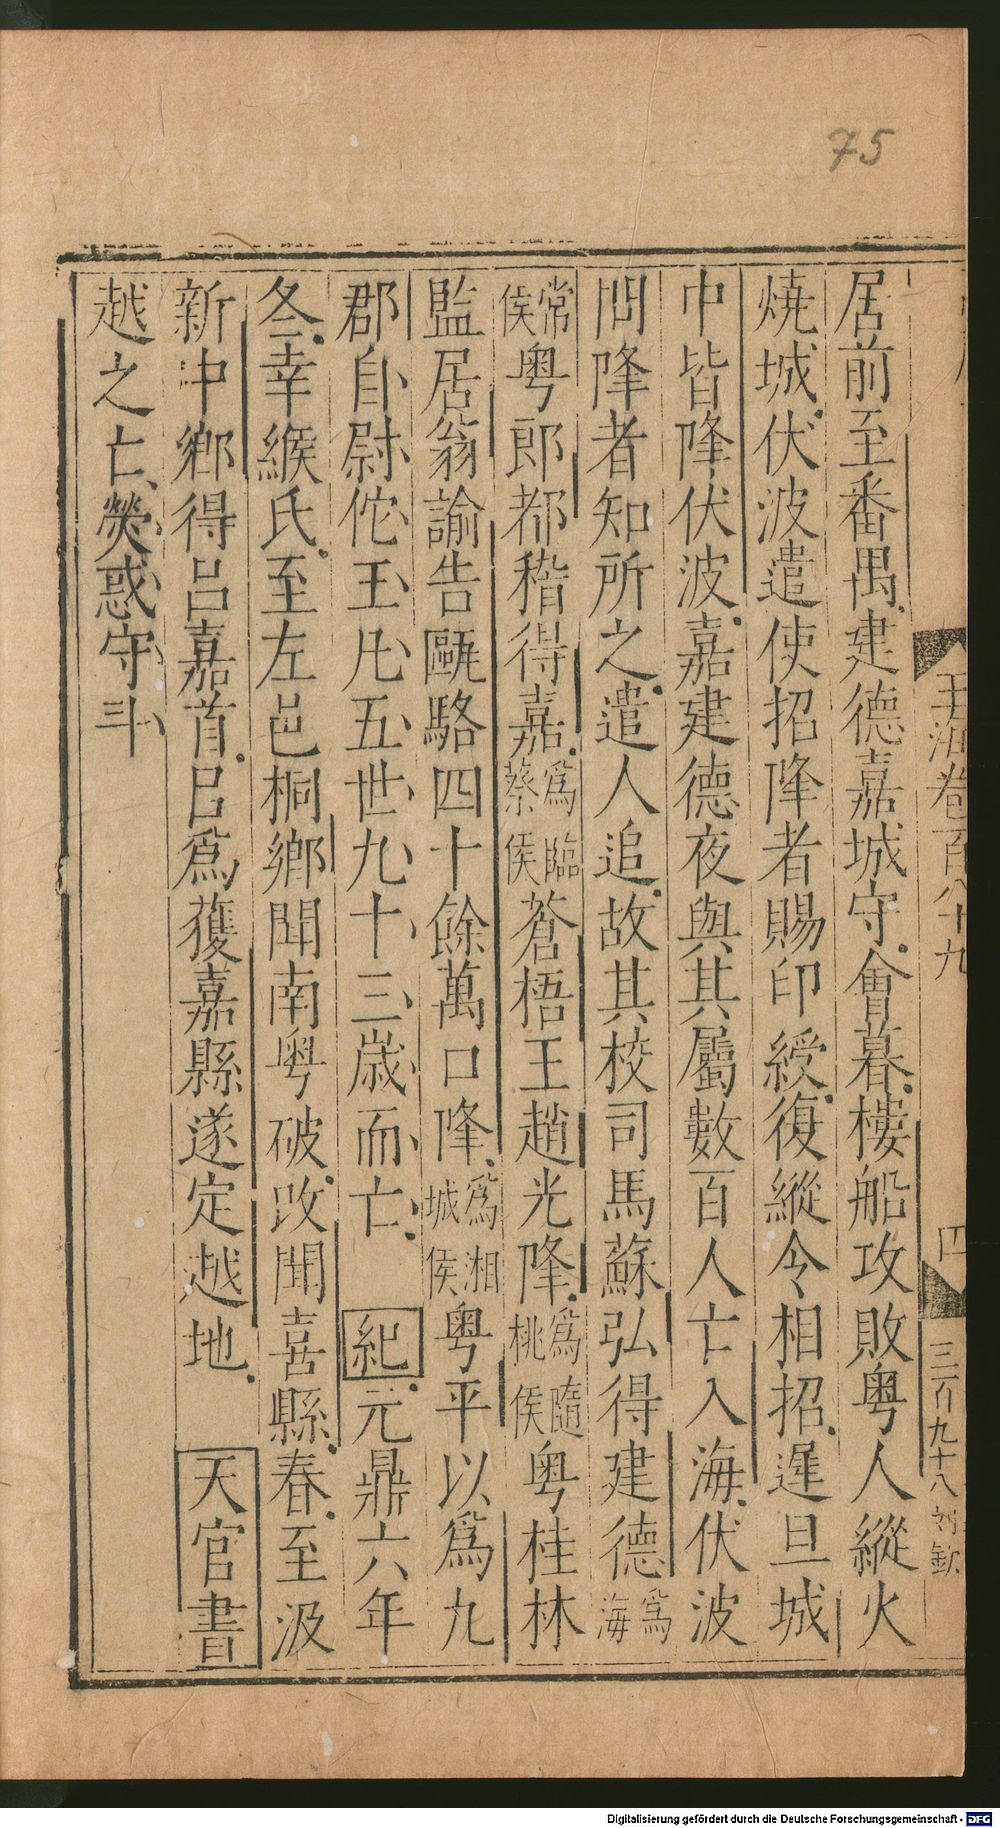 75
居前至番禺建德嘉城守會暮樓船攻敗粤人縱火
燒城伏波遣使招降者賜印綬復縱令相招遲旦城
中皆降伏波嘉建德夜與其屬數百人亡入海伏波
問降者知所之遣人追故其校司馬蘇弘得建德爲海
常侯粤郎都稽得嘉爲臨蔡侯蒼梧王趙光降爲隨桃侯粤桂林
監居翁諭告甌駱四十餘萬口降爲湘城侯粤平以爲九
郡自尉佗王凡五世九十三歲而亡紀元鼎六年
冬幸緱氏至左邑桐鄉聞南粤破改聞喜縣春至汲
新中鄉得呂嘉首巳爲獲嘉縣遂定越地天官書
越之亡熒惑守斗
玉海卷百八十九
四
三百九十八
Digitalisierung gefördert durch die Deutsche Forschungsgemeinschaft - DFG